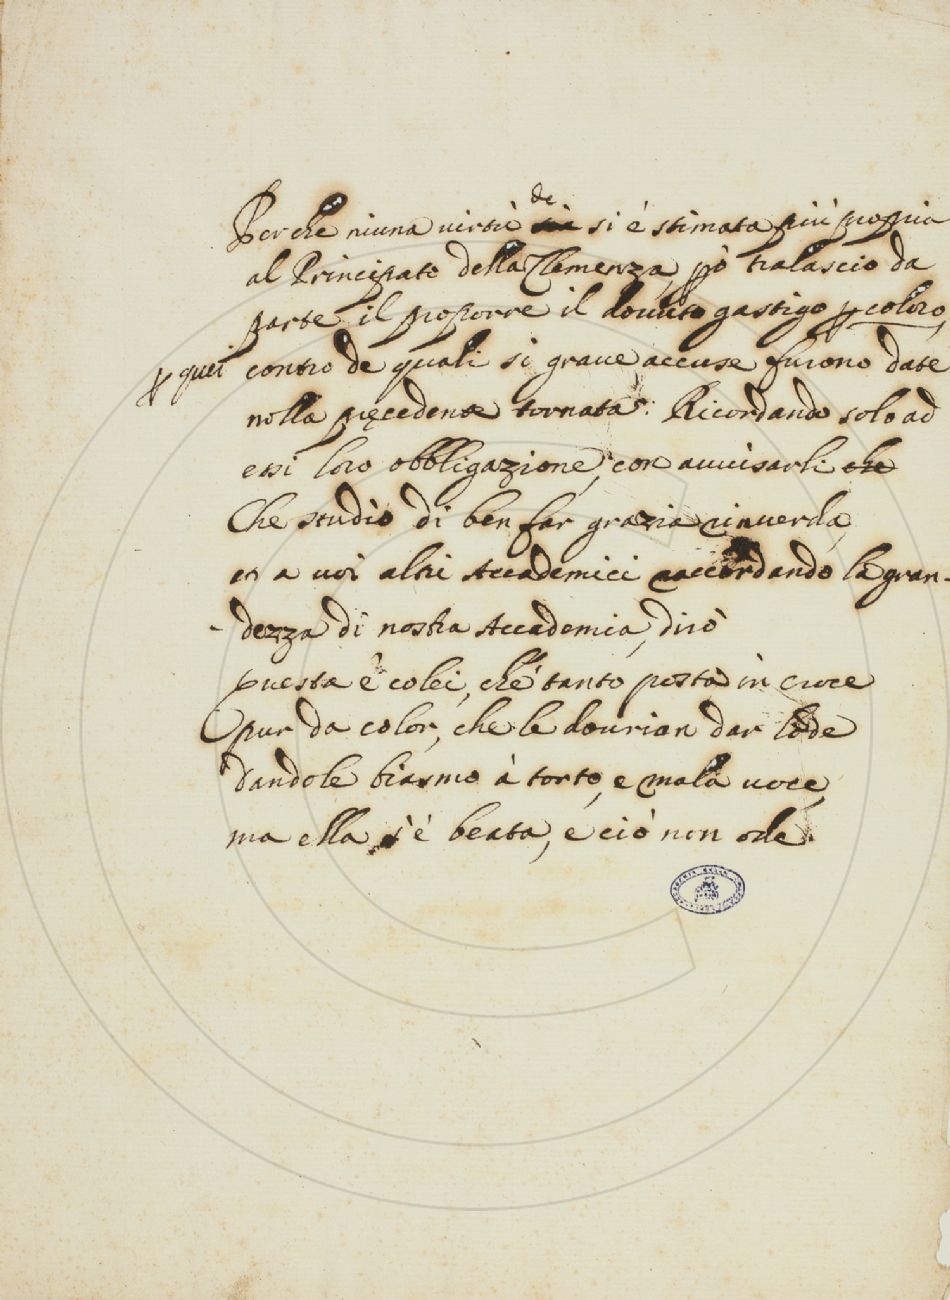 de
Perche niuna virtù sia si è stimata più propria
al Principato della Clemenza, però tralascio da
parte il proporre il douuto gastigo per coloro,
per quei contro de quali si graue accuse furono date
nella precedente tornata. Ricordando solo ad
essi loro obbligazione, con auuisarli che
Che studio di ben far grazia rinuerda,
et a uoi altri Accademici raccordando la gran-
dezza di nostra Accademia, dirò
Questa è colei, ch'è tanto posta in croce
pur da color, che le dourian dar lode
dandole biasmo à torto, e mala uoce,
ma ella s'è beata, e ciò non ode.